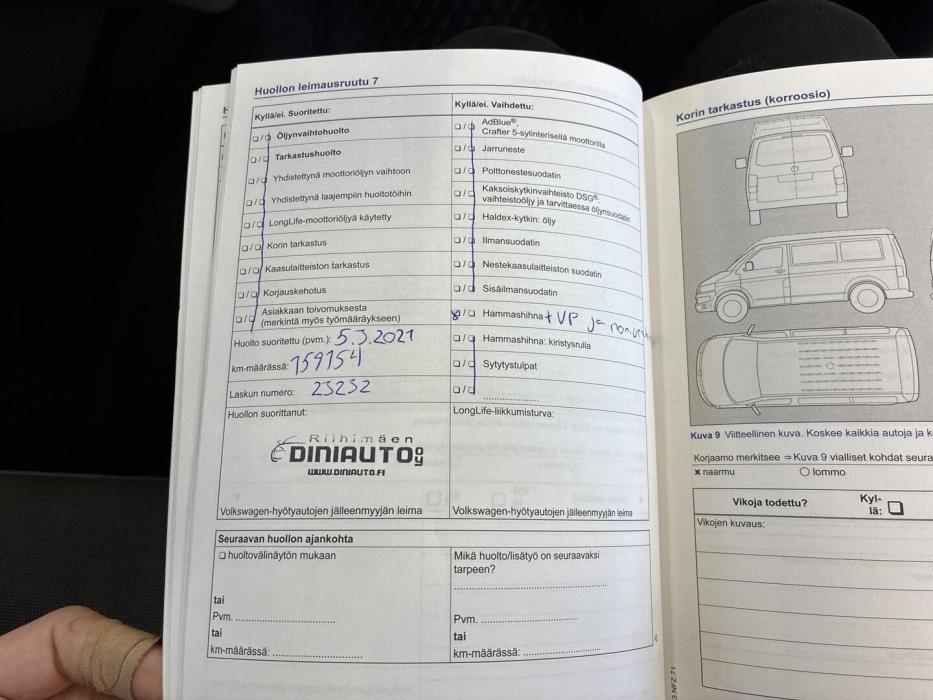 Huollon leimausruutu 7
Kyllä/ei. Suoritettu:
Öljynvaihtohuolto
Tarkastushuolto
Yhdistettynä moottoriöljyn vaihtoon
Yhdistettynä laajempiin huoltotöihin
LongLife-moottoriöljyä käytetty
Korin tarkastus
Kaasulaitteiston tarkastus
Korjauskehotus
Asiakkaan toivomuksesta
(merkintä myös työmääräykseen)
Huolto suoritettu (pvm.): 5.3.2021
km-määrässä: 159154
Laskun numero: 23232
Kyllä/ei. Vaihdettu:
AdBlue®,
Crafter 5-sylinterisellä moottorilla
Jarruneste
Polttonestesuodatin
Kaksoiskytkinvaihteisto DSG®:
vaihteistoöljy ja tarvittaessa öljynsuodatin
Haldex-kytkin: öljy
Ilmansuodatin
Nestekaasulaitteiston suodatin
Sisäilmansuodatin
Hammashihna + VP ja
Hammashihna: kiristysrulla
Sytytystulpat
Huollon suorittanut:
Riihimäen
DINIAUTO
WWW.DINIAUTO.FI
Volkswagen-hyötyautojen jälleenmyyjän leima
LongLife-liikkumisturva:
Volkswagen-hyötyautojen jälleenmyyjän leima
Seuraavan huollon ajankohta
huoltovälinäytön mukaan
tai
Pvm.
tai
km-määrässä:
Mikä huolto/lisätyö on seuraavaksi
tarpeen?
Pvm.
tai
km-määrässä:
Korin tarkastus (korroosio)
Kuva 9 Viitteellinen kuva. Koskee kaikkia autoja ja
Korjaamo merkitsee ⇒ Kuva 9 vialliset kohdat
x naarmu
O lommo
Vikoja todettu?
Kyl-
lä:
Vikojen kuvaus: